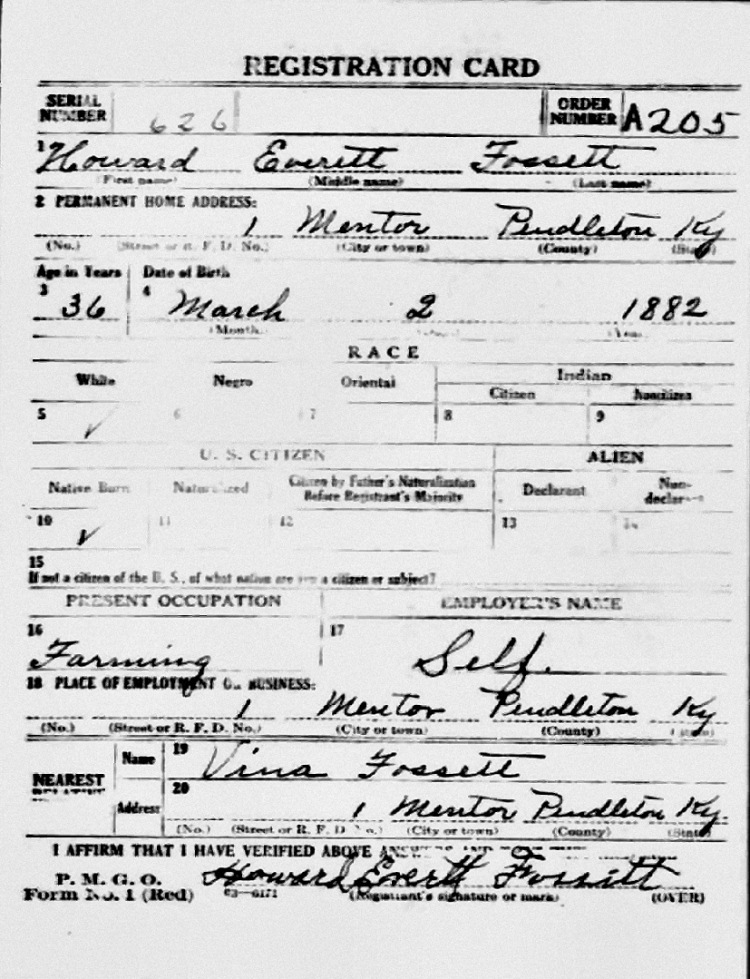 REGISTRATION CARD
SERIAL NUMBER 626 ORDER NUMBER A205
1 Howard Everett Fossett
(First name) (Middle name) (Last name)
2 PERMANENT HOME ADDRESS:
1 Mentor Pendleton Ky
(No.) (Street or R. F. D. No.) (City or town) (County) (State)
Age in Years Date of Birth
3 36 4 March 2 1882
(Month) (Year)
RACE
White Negro Oriental Indian
Citizen Noncitizen
5 ✓ 6 7 8 9
U. S. CITIZEN ALIEN
Native Born Naturalized Citizen by Father's Naturalization Before Registrant's Majority Declarant Non-declarant
10 ✓ 11 12 13 14
15
If not a citizen of the U. S., of what nation are you a citizen or subject?
PRESENT OCCUPATION EMPLOYER'S NAME
16 Farming 17 Self.
18 PLACE OF EMPLOYMENT OR BUSINESS:
1 Mentor Pendleton Ky
(No.) (Street or R. F. D. No.) (City or town) (County) (State)
NEAREST RELATIVE Name 19 Vina Fossett
Address 20 1 Mentor Pendleton Ky.
(No.) (Street or R. F. D. No.) (City or town) (County) (State)
I AFFIRM THAT I HAVE VERIFIED ABOVE ANSWERS AND
P. M. G. O. Howard Everett Fossett
Form No. 1 (Red) 03—6171 (Registrant's signature or mark) (OVER)